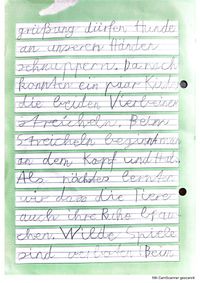 grüßung dürfen Hunde
an unseren Händen
schnuppern. Danach
konnten ein paar Kinder
die beiden Vierbeiner
streicheln. Beim
Streicheln beginnt man
an dem Kopf und Hals.
Als nächstes lernten
wir dass die Tiere
auch ihre Ruhe brau
chen. Wilde Spiele
sind verboten! Beim
Mit CamScanner gescannt